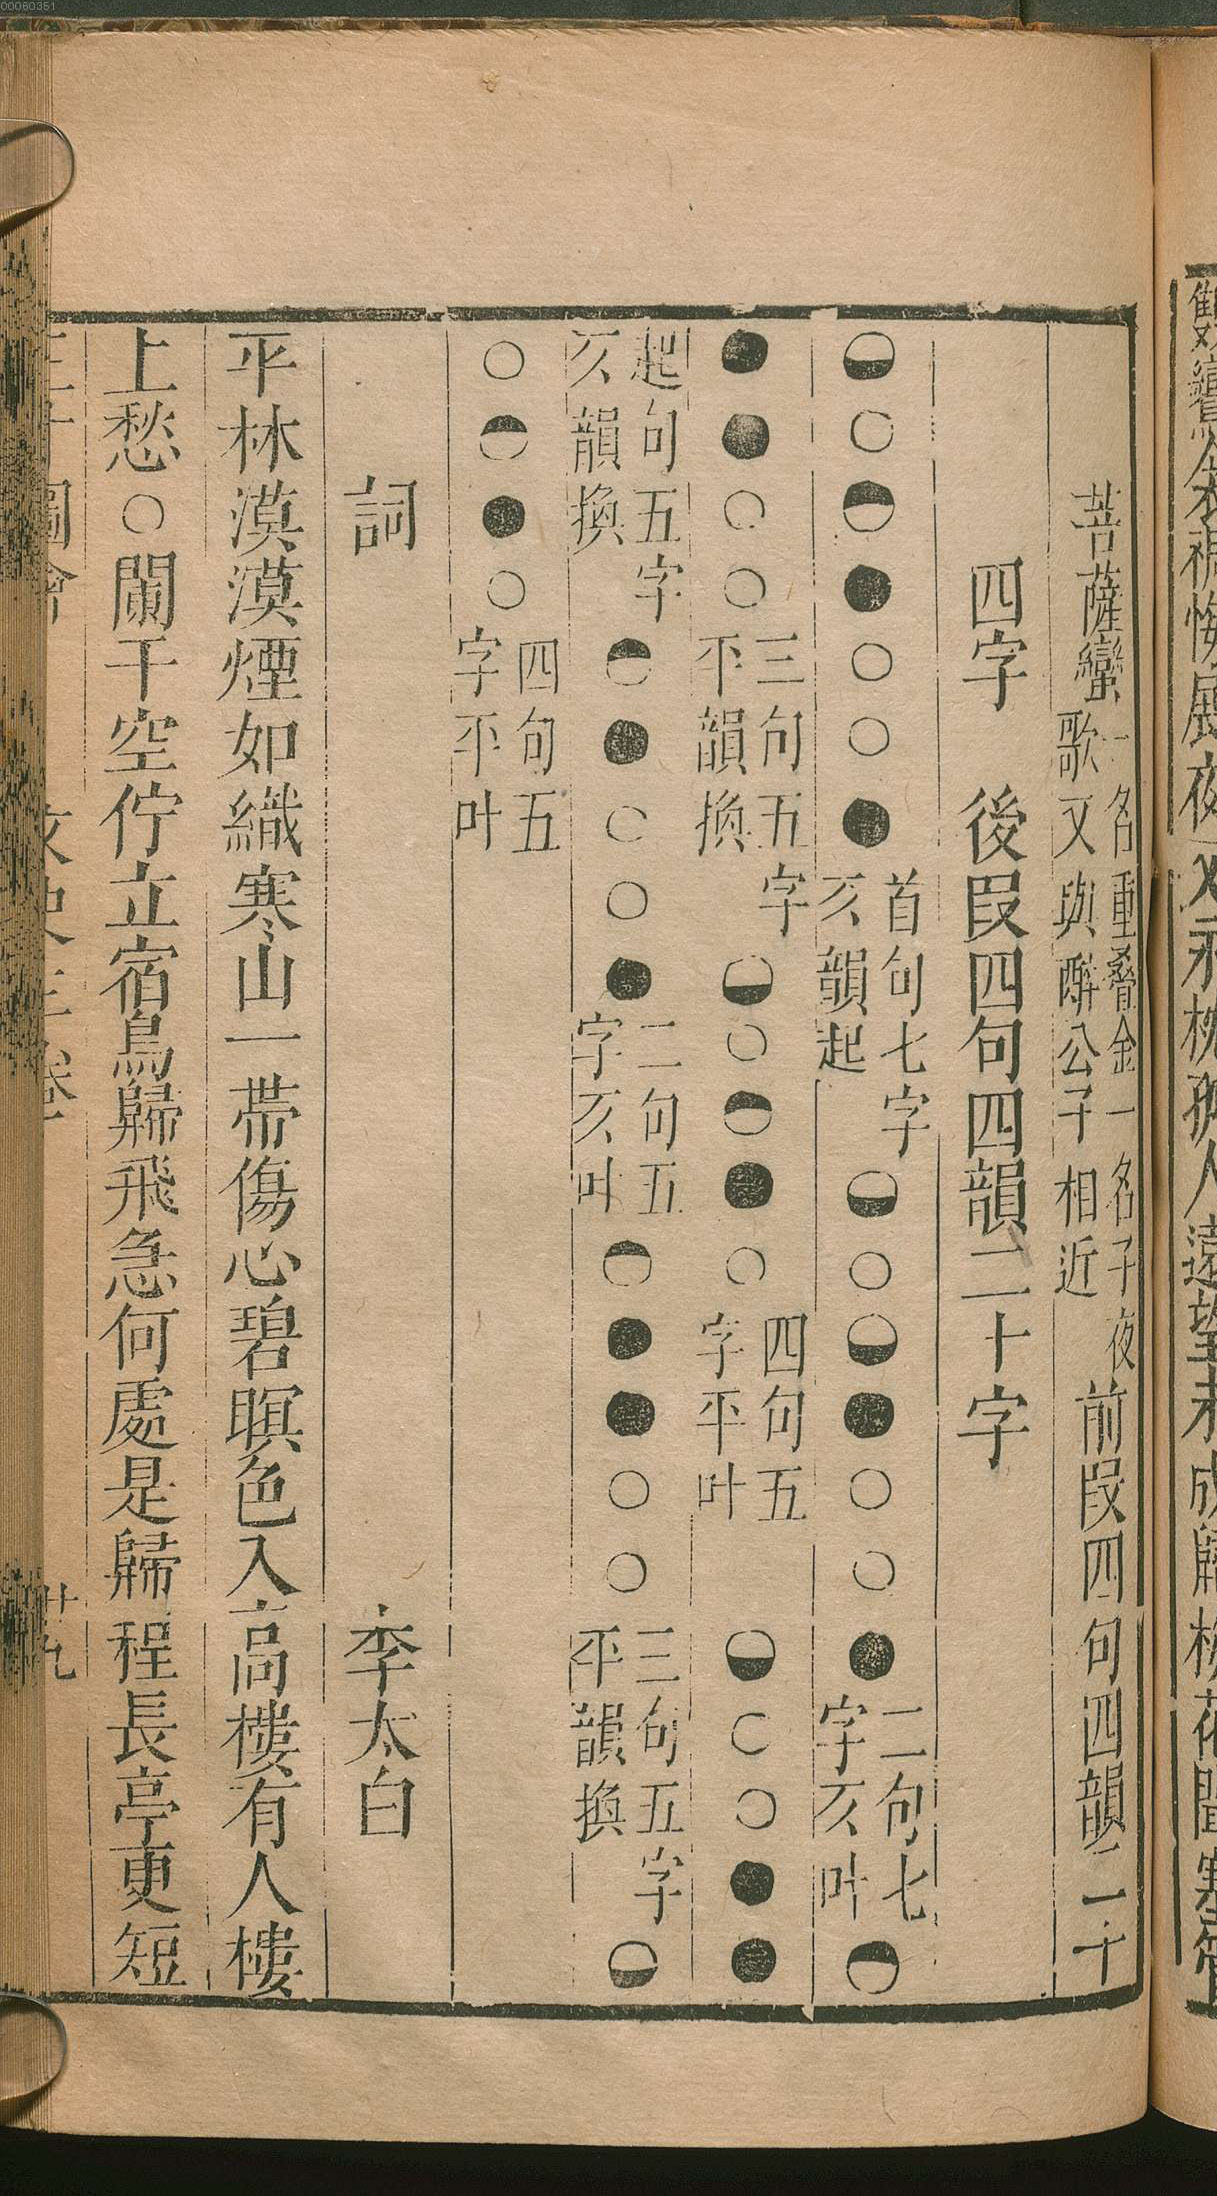 菩薩蠻 一名重疊金一名子夜歌又與醉公子相近 前段四句四韻二十
四字　後段四句四韻二十字
◒○◓●○○● 首句七字亥韻起 ◒○◒●○○● 二句七字亥叶 ◓
●●○○ 三句五字平韻換 ◒○◓●○ 四句五字平叶 ◒○○●●
起句五字亥韻換 ◓●○○● 二句五字亥叶 ◓●●○○ 三句五字平韻換 ◒
○◓●○ 四句五字平叶
詞　李太白
平林漠漠煙如織寒山一帶傷心碧暝色入高樓有人樓
上愁○闌干空佇立宿鳥歸飛急何處是歸程長亭更短
00060351